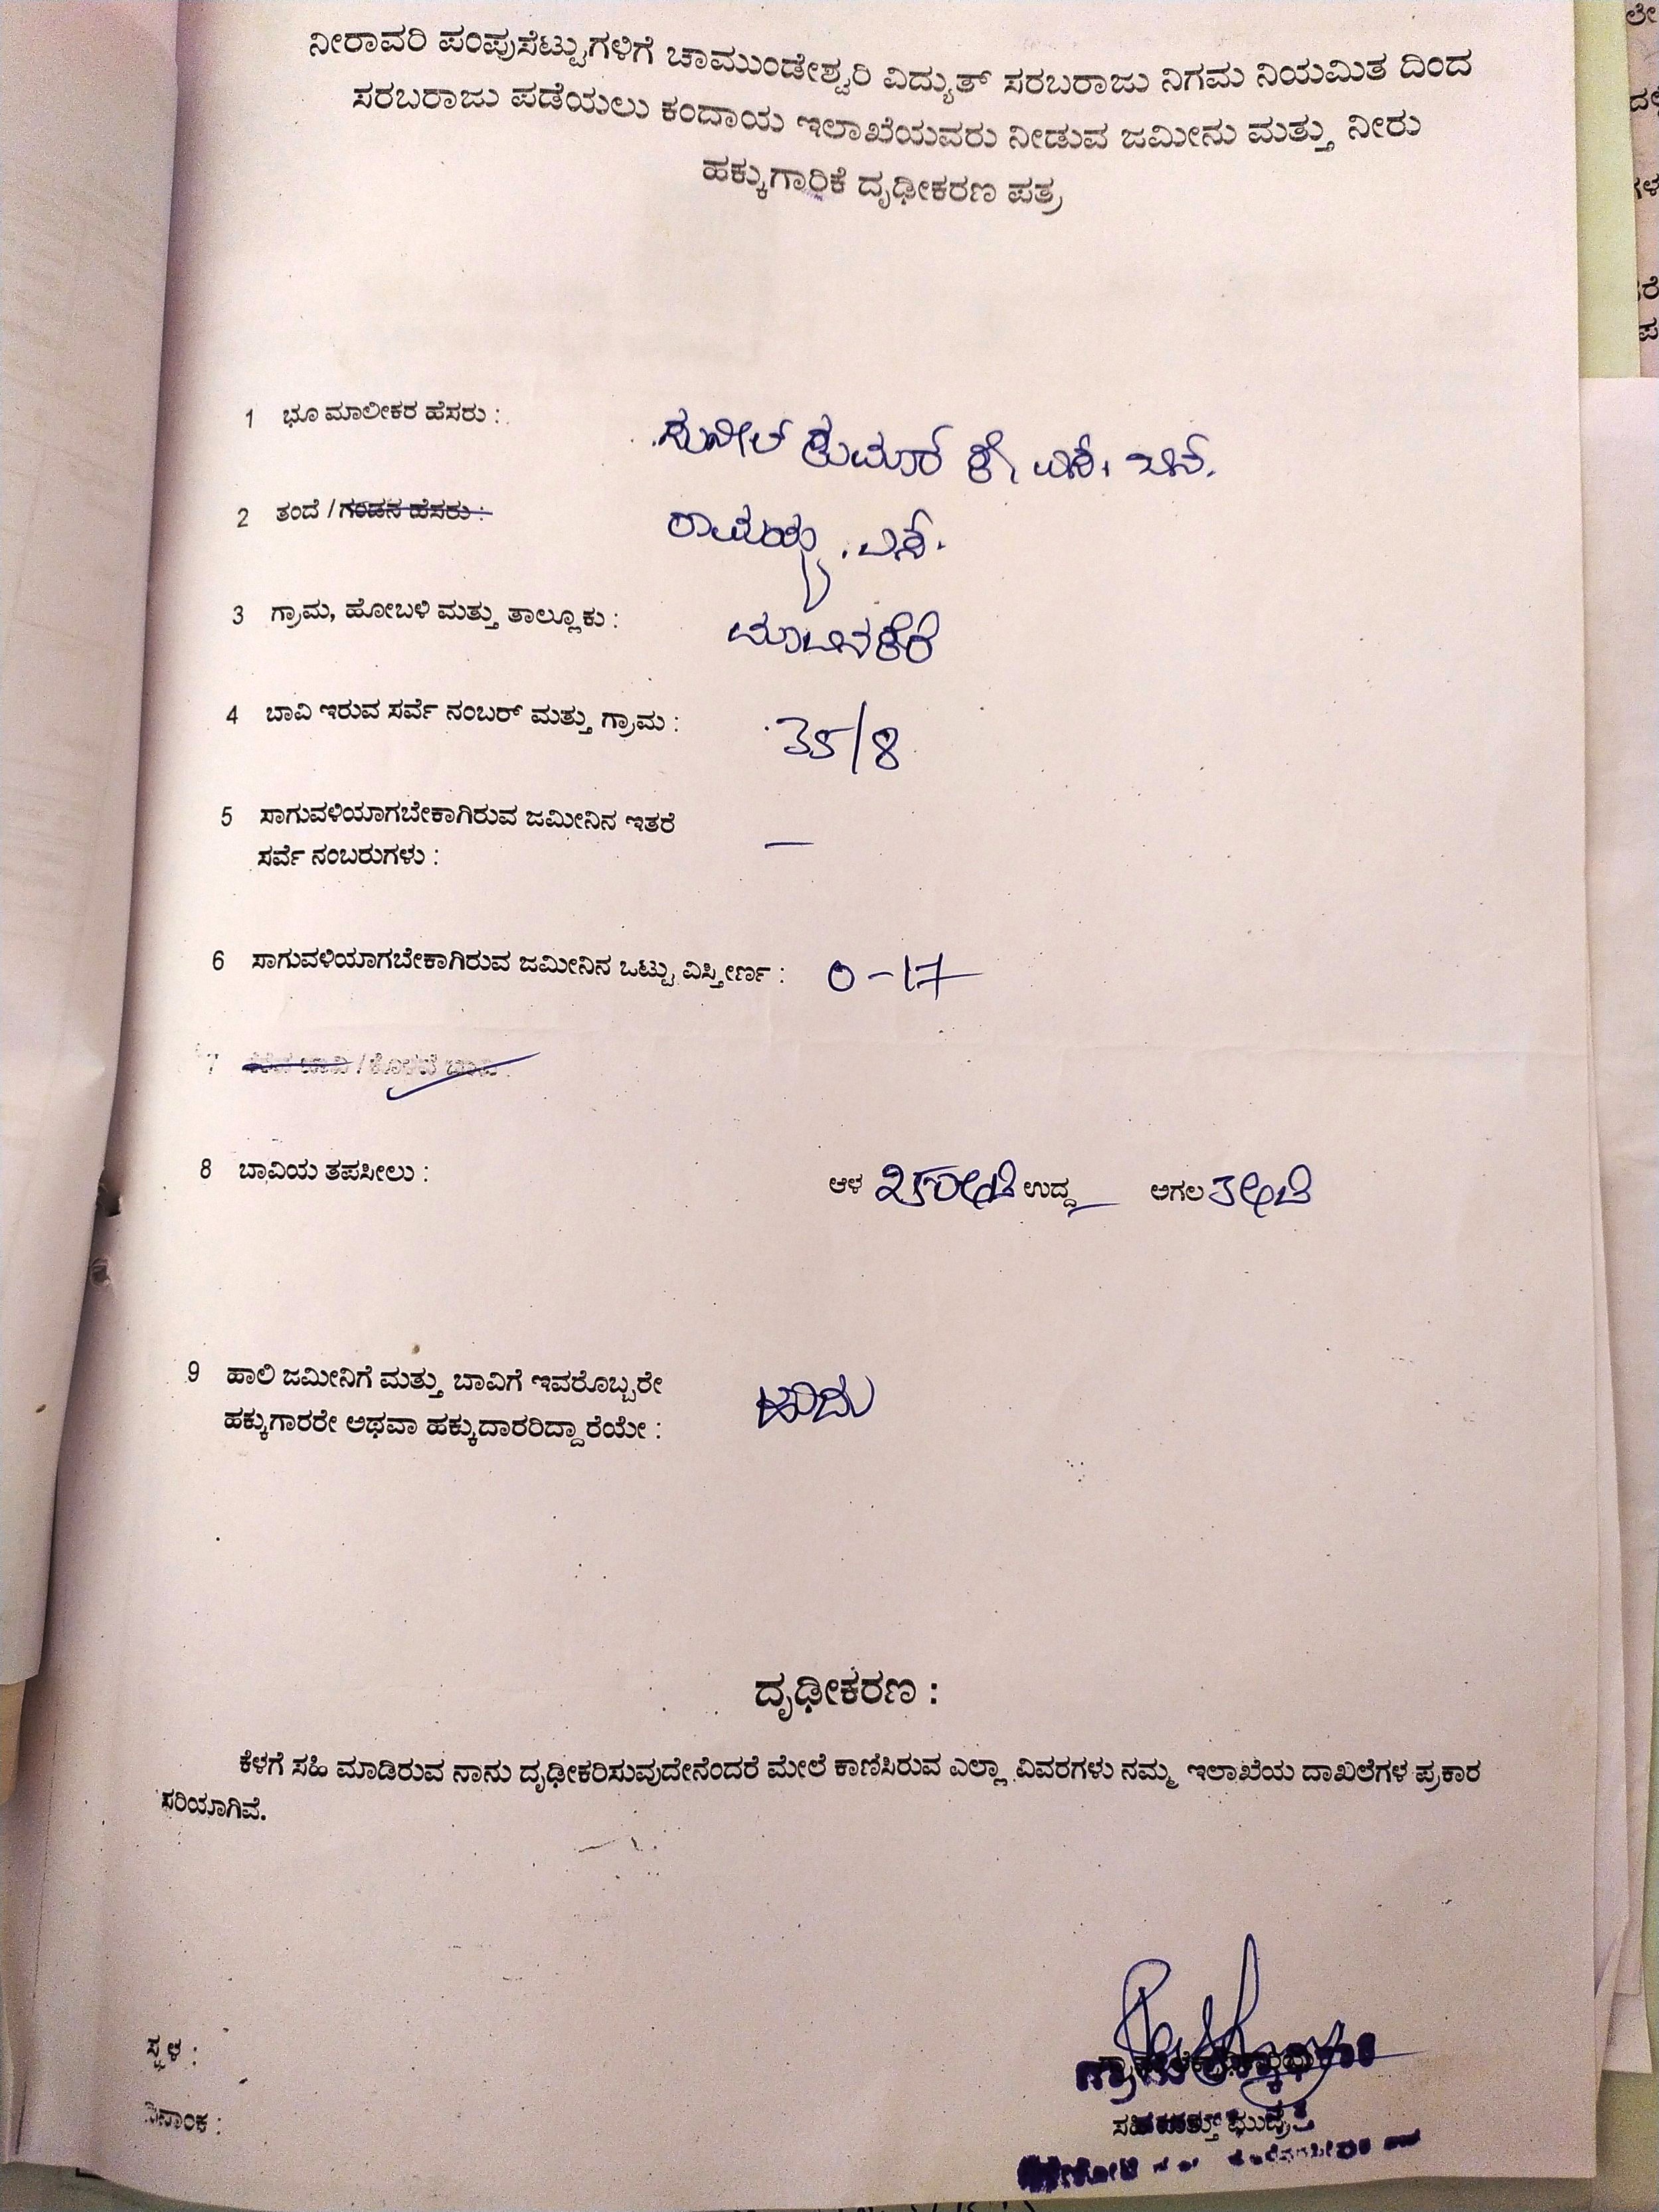 ನೀರಾವರಿ ಪಂಪುಸೆಟ್ಟುಗಳಿಗೆ ಚಾಮುಂಡೇಶ್ವರಿ ವಿದ್ಯುತ್ ಸರಬರಾಜು ನಿಗಮ ನಿಯಮಿತ ದಿಂದ
ಸರಬರಾಜು ಪಡೆಯಲು ಕಂದಾಯ ಇಲಾಖೆಯವರು ನೀಡುವ ಜಮೀನು ಮತ್ತು ನೀರು
ಹಕ್ಕುಗಾರಿಕೆ ದೃಢೀಕರಣ ಪತ್ರ
1 ಭೂ ಮಾಲೀಕರ ಹೆಸರು : ಸುನೀಲ್ ಕುಮಾರ್ ಕೆ, ಎಸ್. ಬಿನ್.
2 ತಂದೆ / ಗಂಡನ ಹೆಸರು : ರಾಮಯ್ಯ . ಎಸ್.
3 ಗ್ರಾಮ, ಹೋಬಳಿ ಮತ್ತು ತಾಲ್ಲೂಕು : ಮಾವಿನಕೆರೆ
4 ಬಾವಿ ಇರುವ ಸರ್ವೆ ನಂಬರ್ ಮತ್ತು ಗ್ರಾಮ : 35/8
5 ಸಾಗುವಳಿಯಾಗಬೇಕಾಗಿರುವ ಜಮೀನಿನ ಇತರೆ
ಸರ್ವೆ ನಂಬರುಗಳು : —
6 ಸಾಗುವಳಿಯಾಗಬೇಕಾಗಿರುವ ಜಮೀನಿನ ಒಟ್ಟು ವಿಸ್ತೀರ್ಣ : 0-17
7 ತೆರೆದ ಬಾವಿ / ಕೊಳವೆ ಬಾವಿ :
8 ಬಾವಿಯ ತಪಸೀಲು : ಆಳ ಉದ್ದ — ಅಗಲ
9 ಹಾಲಿ ಜಮೀನಿಗೆ ಮತ್ತು ಬಾವಿಗೆ ಇವರೊಬ್ಬರೇ
ಹಕ್ಕುಗಾರರೇ ಅಥವಾ ಹಕ್ಕುದಾರರಿದ್ದಾರೆಯೇ : ಹೌದು
ದೃಢೀಕರಣ :
ಕೆಳಗೆ ಸಹಿ ಮಾಡಿರುವ ನಾನು ದೃಢೀಕರಿಸುವುದೇನೆಂದರೆ ಮೇಲೆ ಕಾಣಿಸಿರುವ ಎಲ್ಲಾ ವಿವರಗಳು ನಮ್ಮ ಇಲಾಖೆಯ ದಾಖಲೆಗಳ ಪ್ರಕಾರ
ಸರಿಯಾಗಿವೆ.
ಸ್ಥಳ :
ದಿನಾಂಕ :